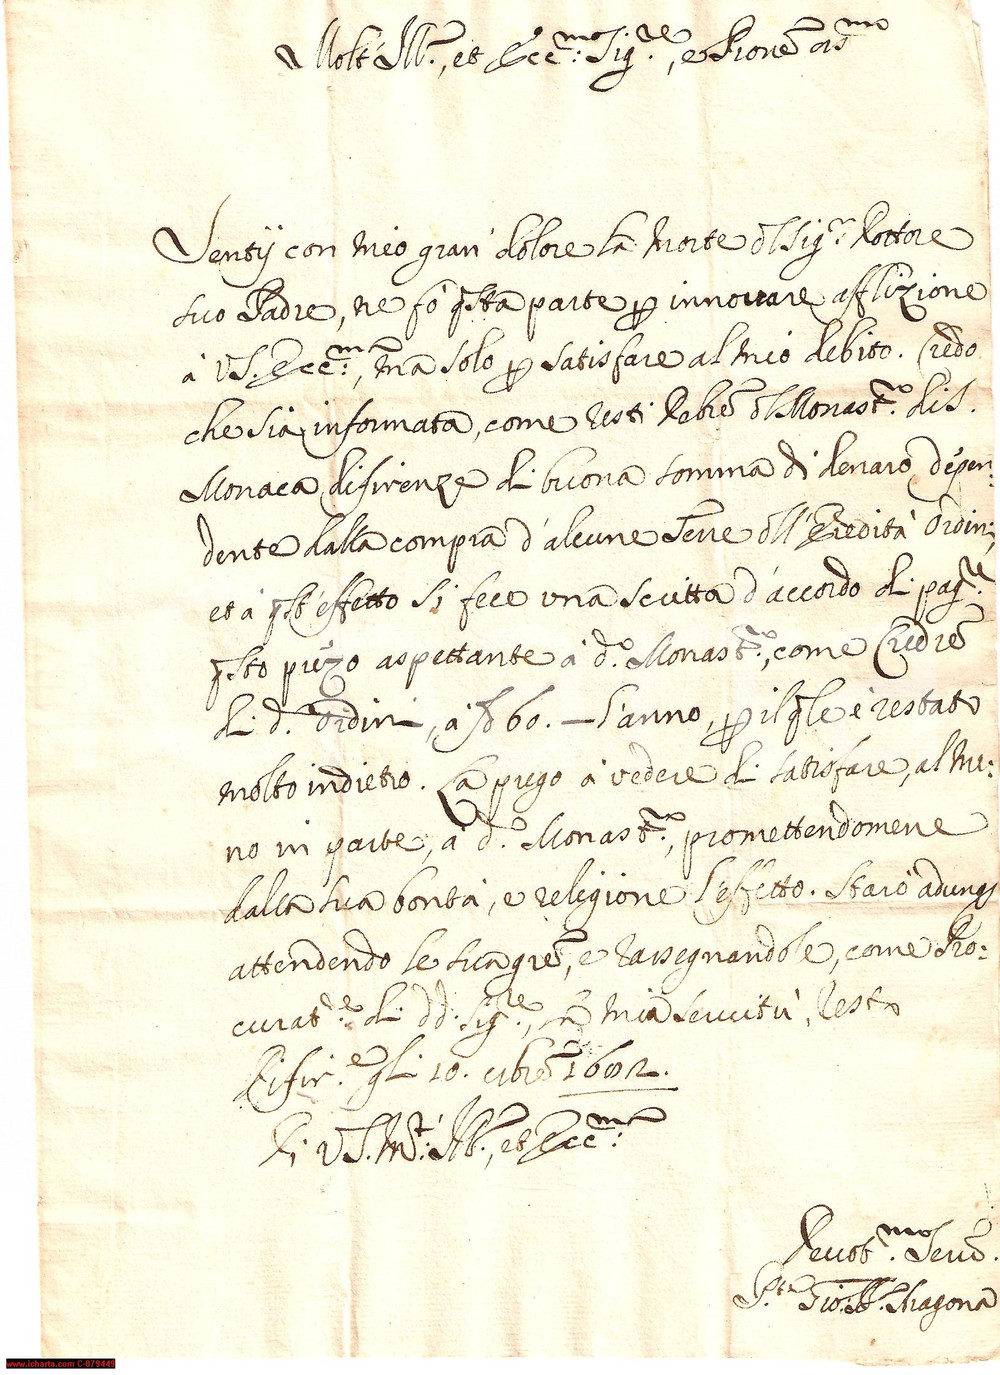 Molt' Ill.re, et Ecc.mo Sig.re, e Prone oss.mo
Sentij con mio gran' dolore la morte dl Sig.r Dottore
suo Padre, ne fò qsta parte p innovare afflizione
à VS. Ecc.ma, ma solo p satisfare al mio debito. Credo
che sia informata, come resti debre dl Monast.ro di S.
Monaca di firenze di buona somma di denaro depen:
dente dalla compra d'alcune Terre dll'Eredità Ordini,
et à qst'effetto si fece una scritta d'accordo di pag.re
qsto prezzo aspettante à d.o Monast.ro, come Credre
di d. Ordini, à 60. l'anno, p il qle è restato
molto indietro. La prego à vedere di satisfare, al me:
no in parte, à d.o Monast.ro, promettendomene
dalla sua bontà, e religione l'effetto. Starò adunq
attendendo le sua gre, e rassegnandole, come Pro:
curat.re di dd. Sig.re, la mia servitù, resto
Di fir.e qli 10. 1692.
Di VS. M.t Ill., et Ecc.ma
Devot.mo Serv.
P.te Gio: Bta Aragona
www.icharta.com C-079449